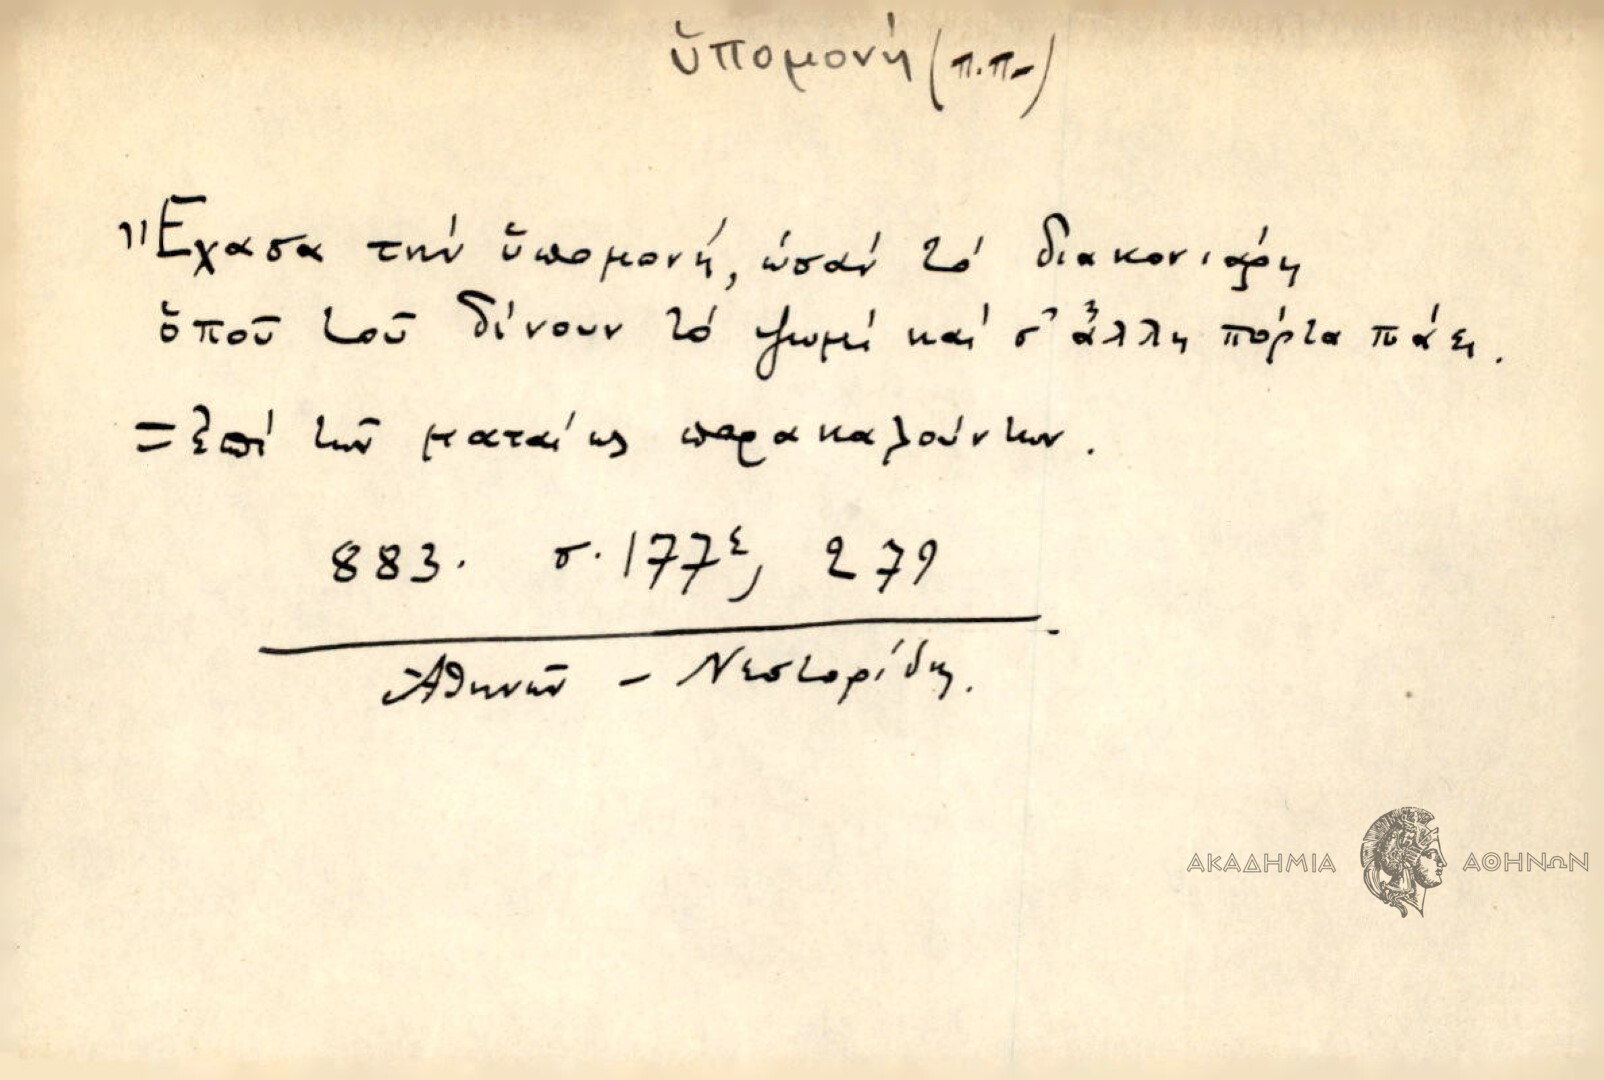 ὑπομονή (π.π.)
"Ἔχασα τήν ὑπομονή, ὡσάν τό διακονιάρη
ὁποῦ τοῦ δίνουν τό ψωμί καί σ' ἄλλη πόρτα πάει.
= ἐπί τῶν ματαίως παρακαλούντων.
883. σ. 177ε, 279
Ἀθηνῶν - Νεστορίδης.
ΑΚΑΔΗΜΙΑ ΑΘΗΝΩΝ